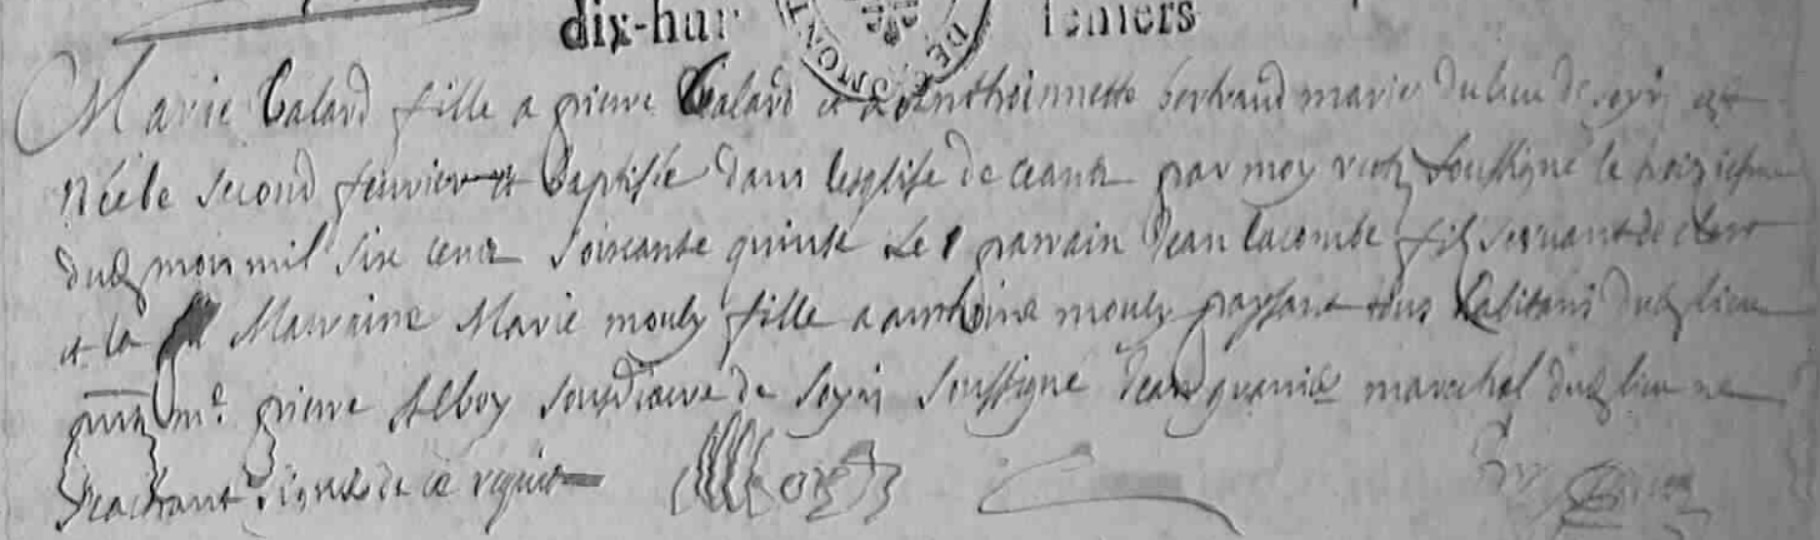 dix-hui deniers
Marie Calard fille a pierre Calard et a anthoinnette bertrand maries du lieu de soyri est
Née le second feuvrier et baptisée dans lesglise de ceans par moy vicre soussigné le troiziesme
dud mois mil six cens soixante quinze Le parrain Jean lacombe fils servant de
et la Marraine Marie mouly fille a anthoine mouly paysant tous habitans dud lieu
pnts me pierre Alboy sousdiacre de Soyri soussigné Jean marechal dud lieu ne
scachant signer de ce requis